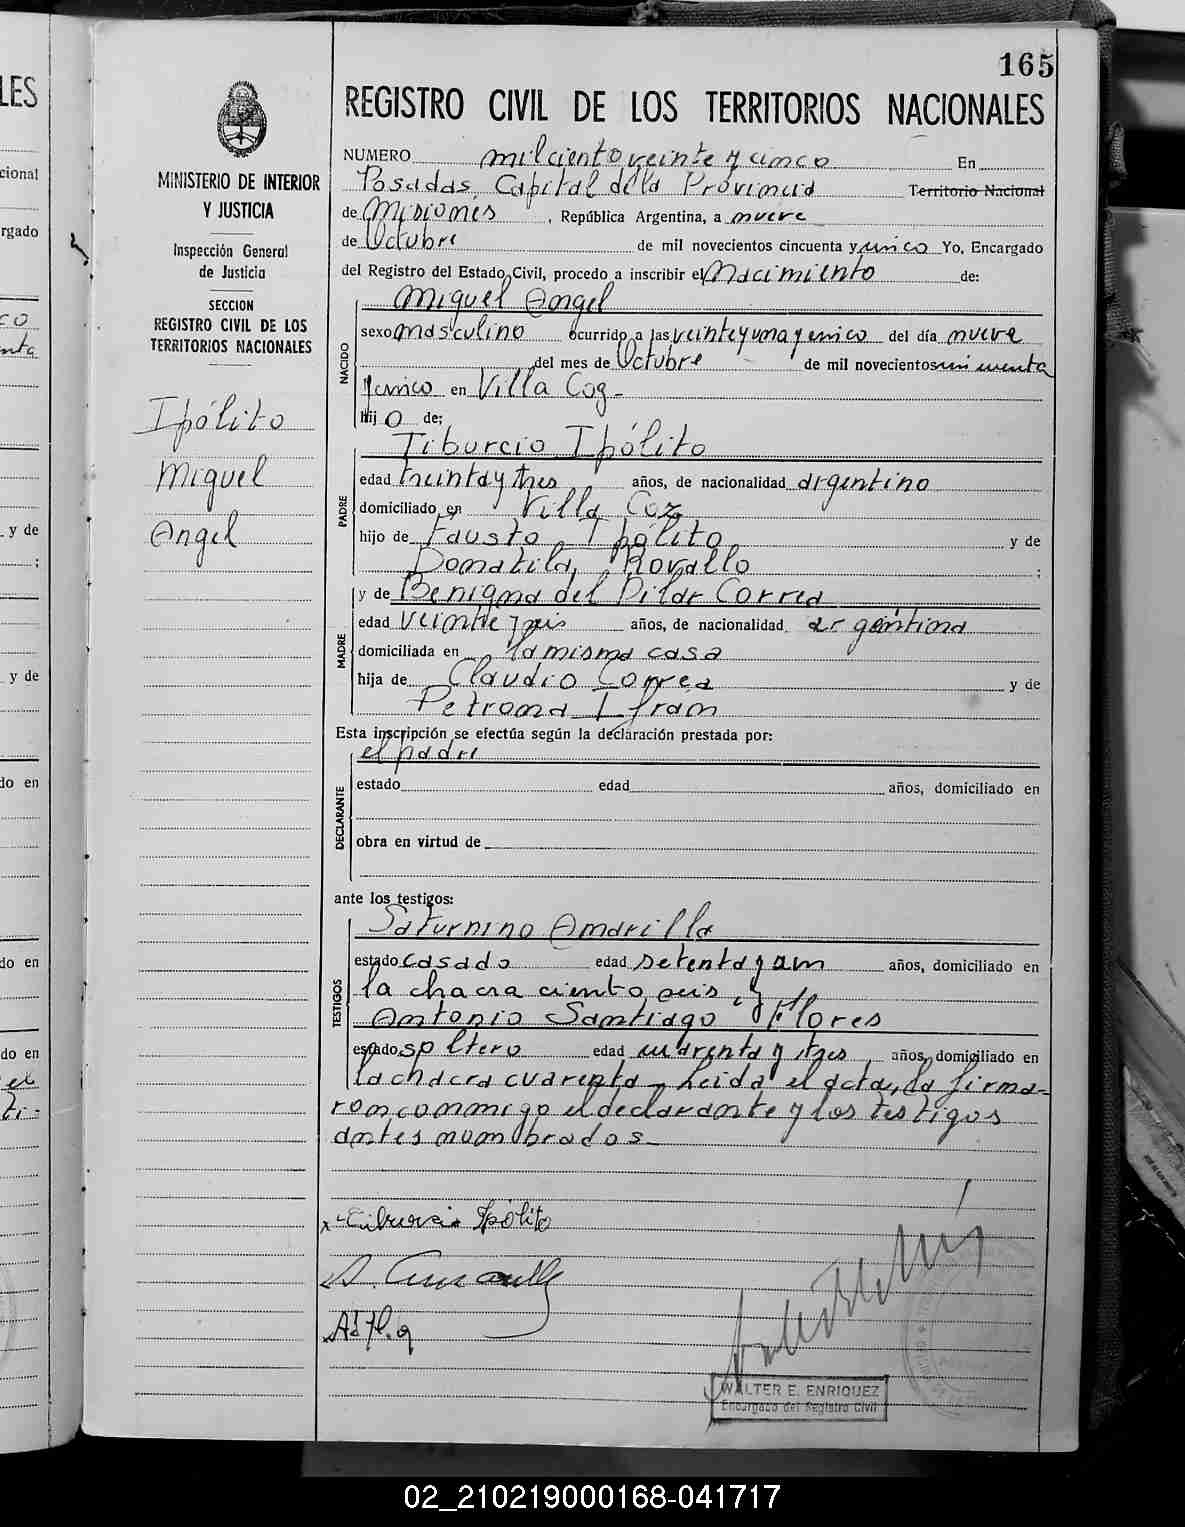 165
REGISTRO CIVIL DE LOS TERRITORIOS NACIONALES
MINISTERIO DE INTERIOR
Y JUSTICIA
Inspección General
de Justicia
SECCION
REGISTRO CIVIL DE LOS
TERRITORIOS NACIONALES
Ipólito
Miguel
Angel
NUMERO mil ciento veinte y cinco En
Posadas Capital de la Provincia Territorio Nacional
de Misiones, República Argentina, a nueve
de Octubre de mil novecientos cincuenta y cinco Yo, Encargado
del Registro del Estado Civil, procedo a inscribir el Nacimiento de:
Miguel Angel
NACIDO
sexo masculino ocurrido a las veinte y una y cinco del día nueve
del mes de Octubre de mil novecientos cincuenta
y cinco en Villa Coz-
hijo de:
Tiburcio Ipólito
PADRE
edad treinta y tres años, de nacionalidad argentino
domiciliado en Villa Coz
hijo de Fausto Ipólito y de
Donatila Rovallo ;
y de Benigna del Pilar Correa
MADRE
edad veinte y seis años, de nacionalidad argentina
domiciliada en la misma casa
hija de Claudio Correa y de
Petrona Ifran
Esta inscripción se efectúa según la declaración prestada por:
el padre
DECLARANTE
estado edad años, domiciliado en
obra en virtud de
ante los testigos:
Saturnino Amarilla
TESTIGOS
estado casado edad setenta y un años, domiciliado en
la chacra ciento seis, y
Antonio Santiago Flores
estado soltero edad cuarenta y tres años, domiciliado en
la chacra cuarenta, leida el acta, la firma-
ron conmigo el declarante y los testigos
antes nombrados-
x Tiburcio Ipólito
WALTER E. ENRIQUEZ
Encargado del Registro Civil
LES
cional
rgado
y de
;
y de
do en
do en
do en
02_210219000168-041717